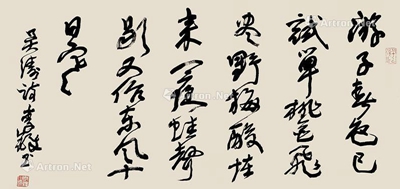 游子春衫已
试单桃花飞
尽野梅酸怪
来一夜蛙声
歇又作东风十
日寒
吴涛诗